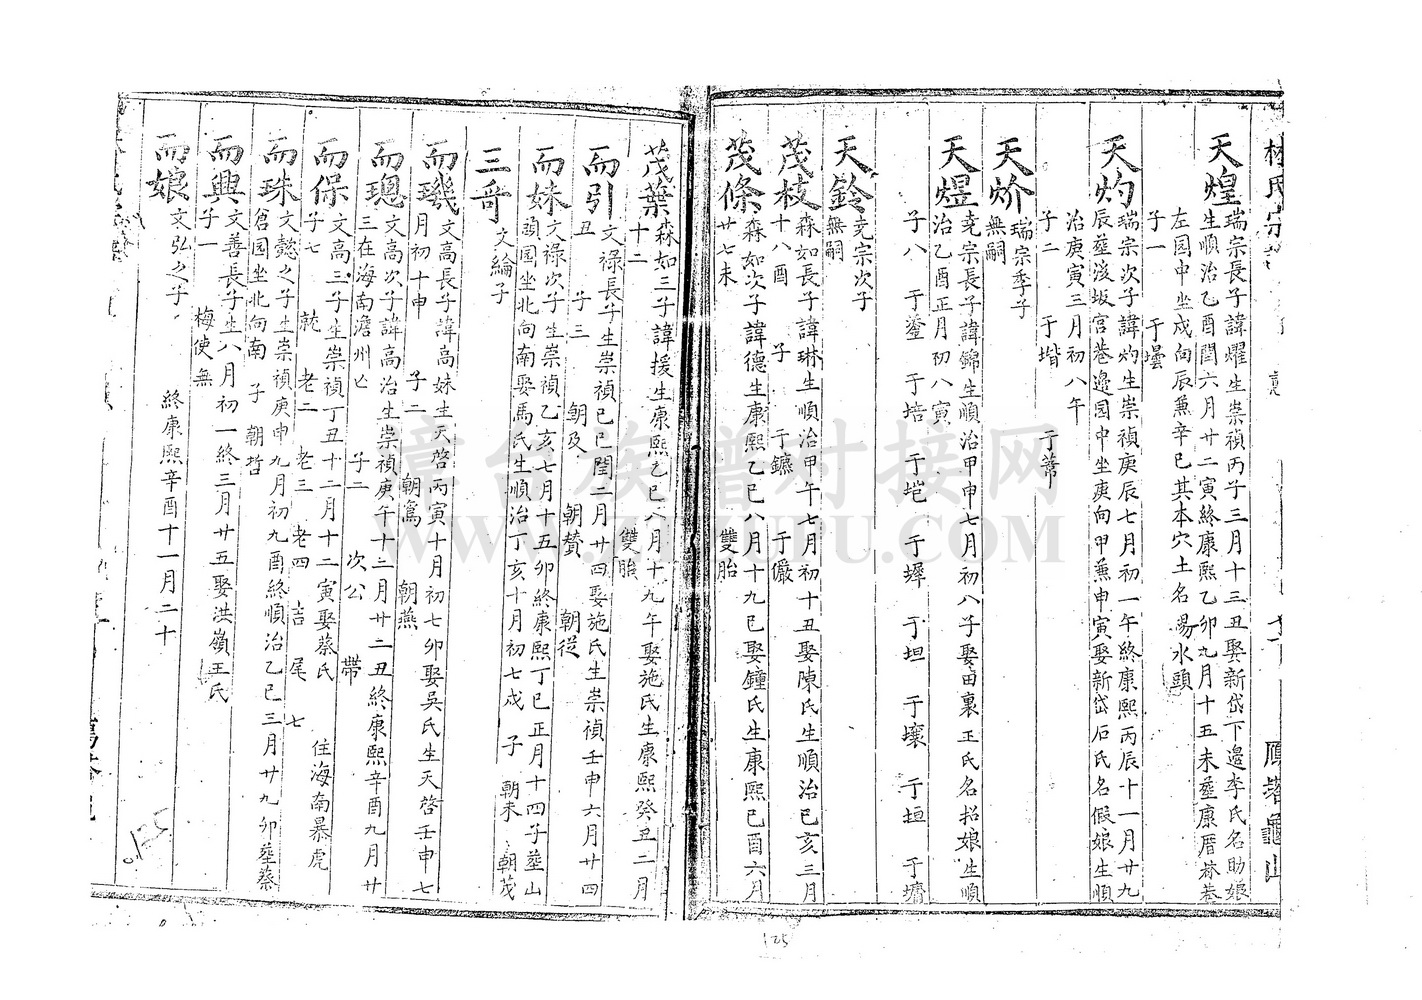 天煌
瑞宗長子諱燿生崇禎丙子三月十三丑娶新岱下邊李氏名助娘
生順治乙酉閏六月廿二寅終康熙乙卯九月十五未塟康厝林巷
左园中坐戌向辰兼辛巳其本穴土名湯水頭
子一 于壜
天灼
瑞宗次子諱灼生崇禎庚辰七月初一午終康熙丙辰十一月廿九
辰塟後坂宮巷邊园中坐庚向甲兼申寅娶新岱石氏名假娘生順
治庚寅三月初八午
子二 于堦 于蕇
天炌
瑞宗季子
無嗣
天煜
尭宗長子諱錦生順治甲申七月初八子娶田裏王氏名招娘生順
治乙酉正月初八寅
子八 于鎏 于培 于垲 于墿 于坦 于壤 于垣 于墉
天鈴
尭宗次子
無嗣
茂枝
森如長子諱琳生順治甲午七月初十丑娶陳氏生順治己亥三月
十八酉 子 于鑣 于儼
茂條
森如次子諱德生康熙乙巳八月十九巳娶鐘氏生康熙己酉六月
廿七未 雙胎
茂葉
森如三子諱援生康熙乙巳八月十九午娶施氏生康熙癸丑二月
十二 雙胎
而引
文禄長子生崇禎己巳閏二月廿四娶施氏生崇禎壬申六月廿四
丑 子三 朝及 朝賛 朝從
而妹
文禄次子生崇禎乙亥七月十五卯終康熙丁巳正月十四子塟山
頭园坐北向南娶馬氏生順治丁亥十月初七戌 子 朝来 朝茂
三哥
文綸子
而璣
文高長子諱高妹生天啓丙寅十月初七卯娶吳氏生天啓壬申七
月初十申 子二 朝㝧 朝燕
而璁
文高次子諱高治生崇禎庚午十二月廿二丑終康熙辛酉九月廿
三在海南澹州亡 子二 次公 带
而保
文高三子生崇禎丁丑十二月十二寅娶蔡氏 住海南暴虎
子七 就 老二 老三 老四 吉 尾 七
而珠
文懿之子生崇禎庚申九月初九酉終順治乙巳三月廿九卯塟蔡
倉园坐北向南 子 朝哲
而興
文善長子生八月初一終三月廿五娶洪嶺王氏
子一 梅使無
而娘
文弘之子 終康熙辛酉十一月二十
125
漳台族谱对接网
WWW.ZTZUPU.COM